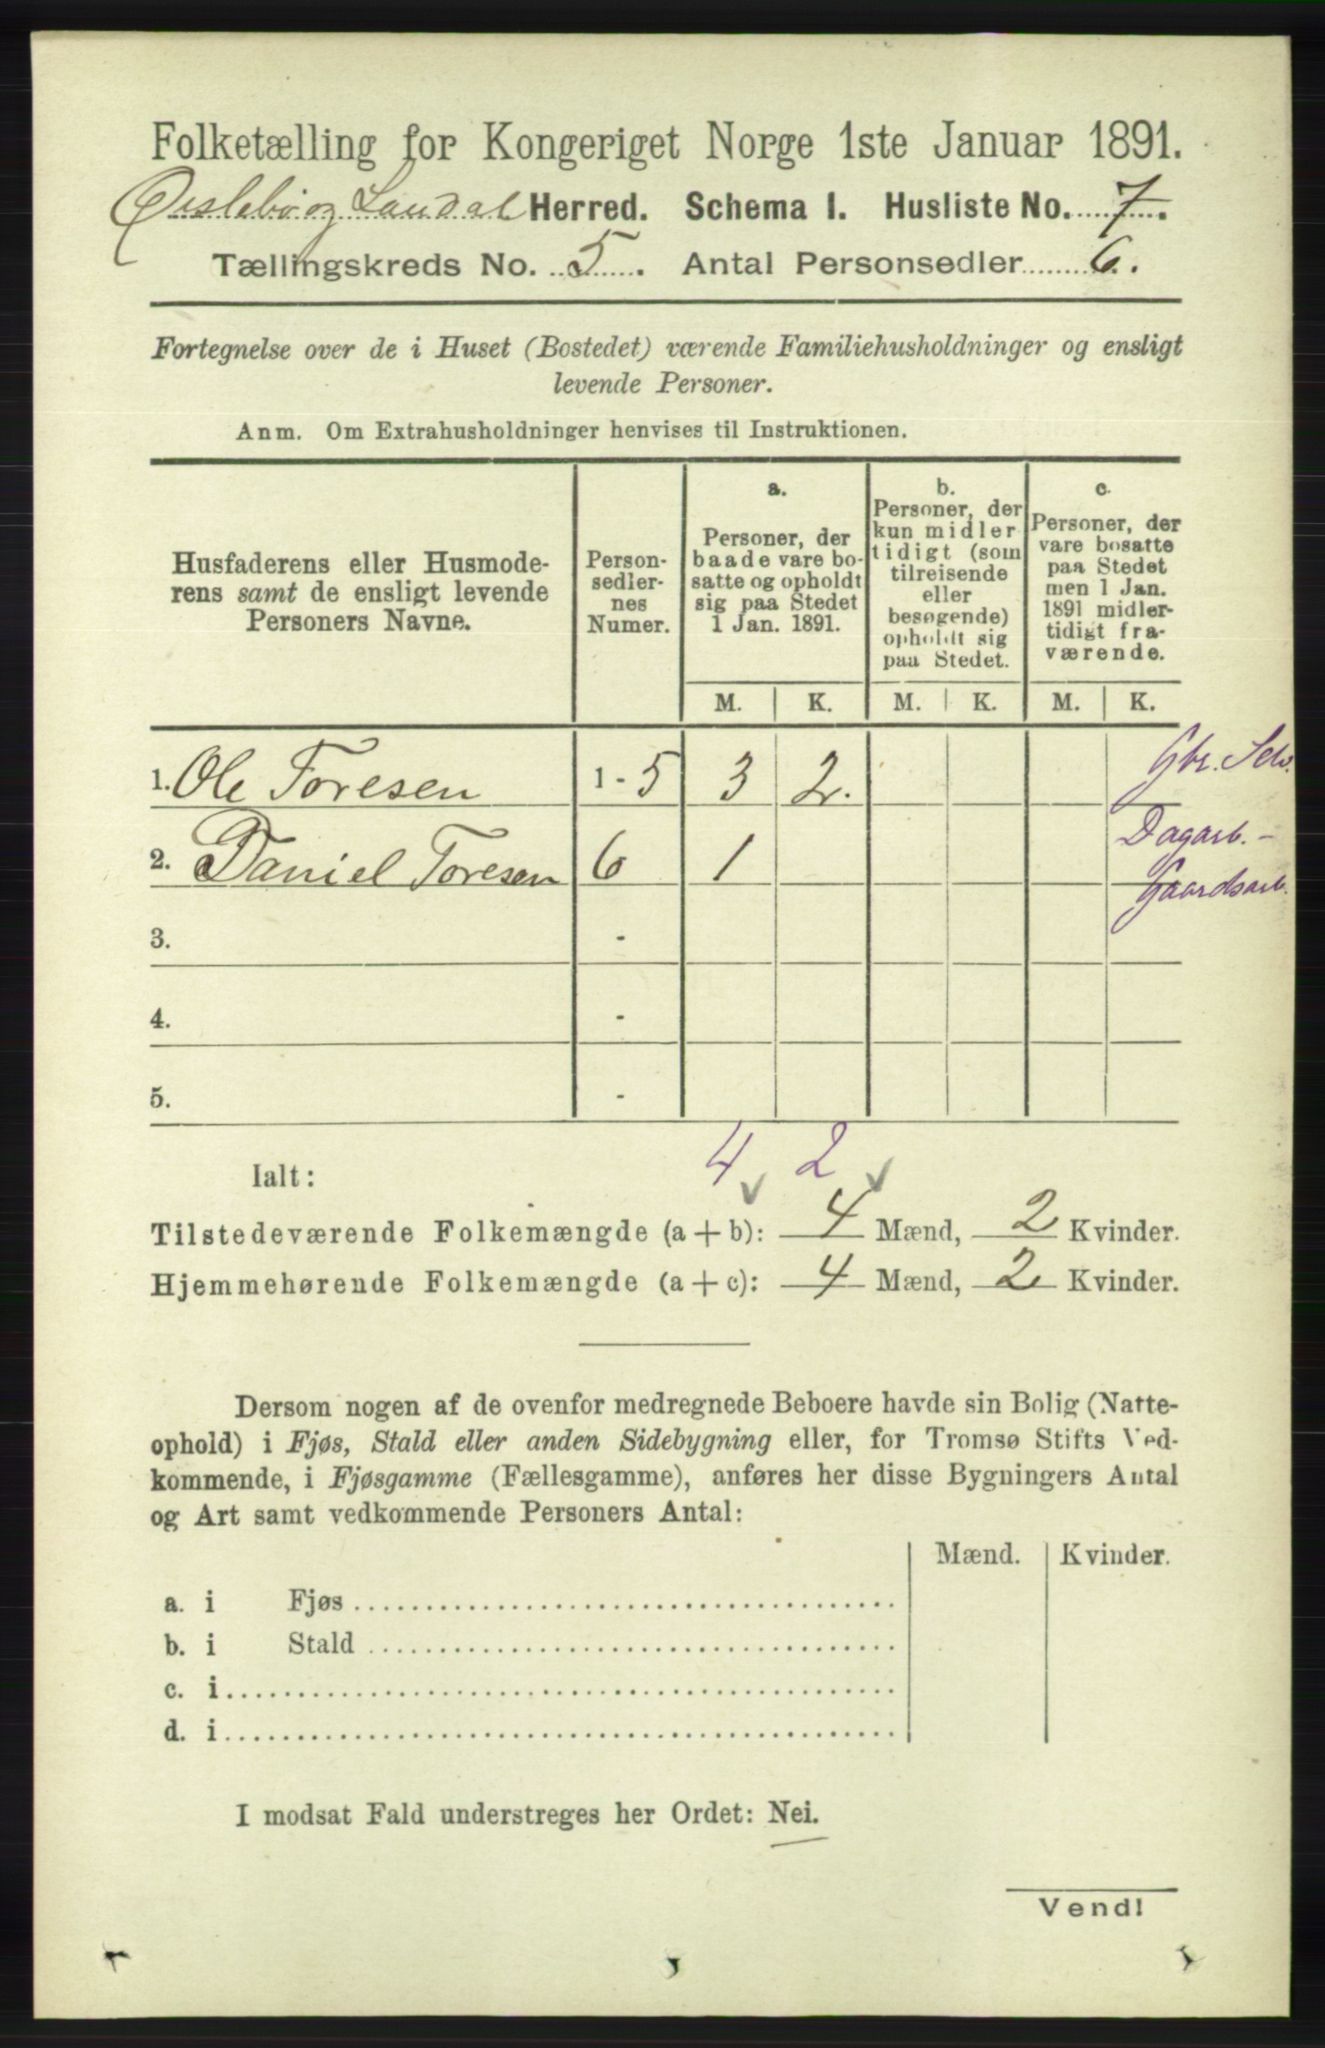 Folketælling for Kongeriget Norge 1ste Januar 1891.
Øislebø og Laudal Herred. Schema I. Husliste No. 7.
Tællingskreds No. 5. Antal Personsedler 6.
Fortegnelse over de i Huset (Bostedet) værende Familiehusholdninger og ensligt
levende Personer.
Anm. Om Extrahusholdninger henvises til Instruktionen.
Husfaderens eller Husmode-
rens samt de ensligt levende
Personers Navne.
Person-
sedler-
nes
Numer.
a.
Personer, der
baade vare bo-
satte og opholdt
sig paa Stedet
1 Jan. 1891.
b.
Personer, der
kun midler
tidigt (som
tilreisende
eller
besøgende)
opholdt sig
paa Stedet.
c.
Personer, der
vare bosatte
paa Stedet
men 1 Jan.
1891 midler-
tidigt fra-
værende.
M. K. M. K. M. K.
1. Ole Toresen 1 - 5 3 2. Gbr. Selv.
2. Daniel Toresen 6 1 Dagarb. -
Gaardsarb.
3. -
4. -
5. -
4 2
Ialt:
Tilstedeværende Folkemængde (a + b): 4 Mænd, 2 Kvinder.
Hjemmehørende Folkemængde (a + c): 4 Mænd, 2 Kvinder.
Dersom nogen af de ovenfor medregnede Beboere havde sin Bolig (Natte-
ophold) i Fjøs, Stald eller anden Sidebygning eller, for Tromsø Stifts Ved-
kommende, i Fjøsgamme (Fællesgamme), anføres her disse Bygningers Antal
og Art samt vedkommende Personers Antal:
Mænd. Kvinder.
a. i Fjøs
b. i Stald
c. i
d. i
I modsat Fald understreges her Ordet: Nei.
Vend!